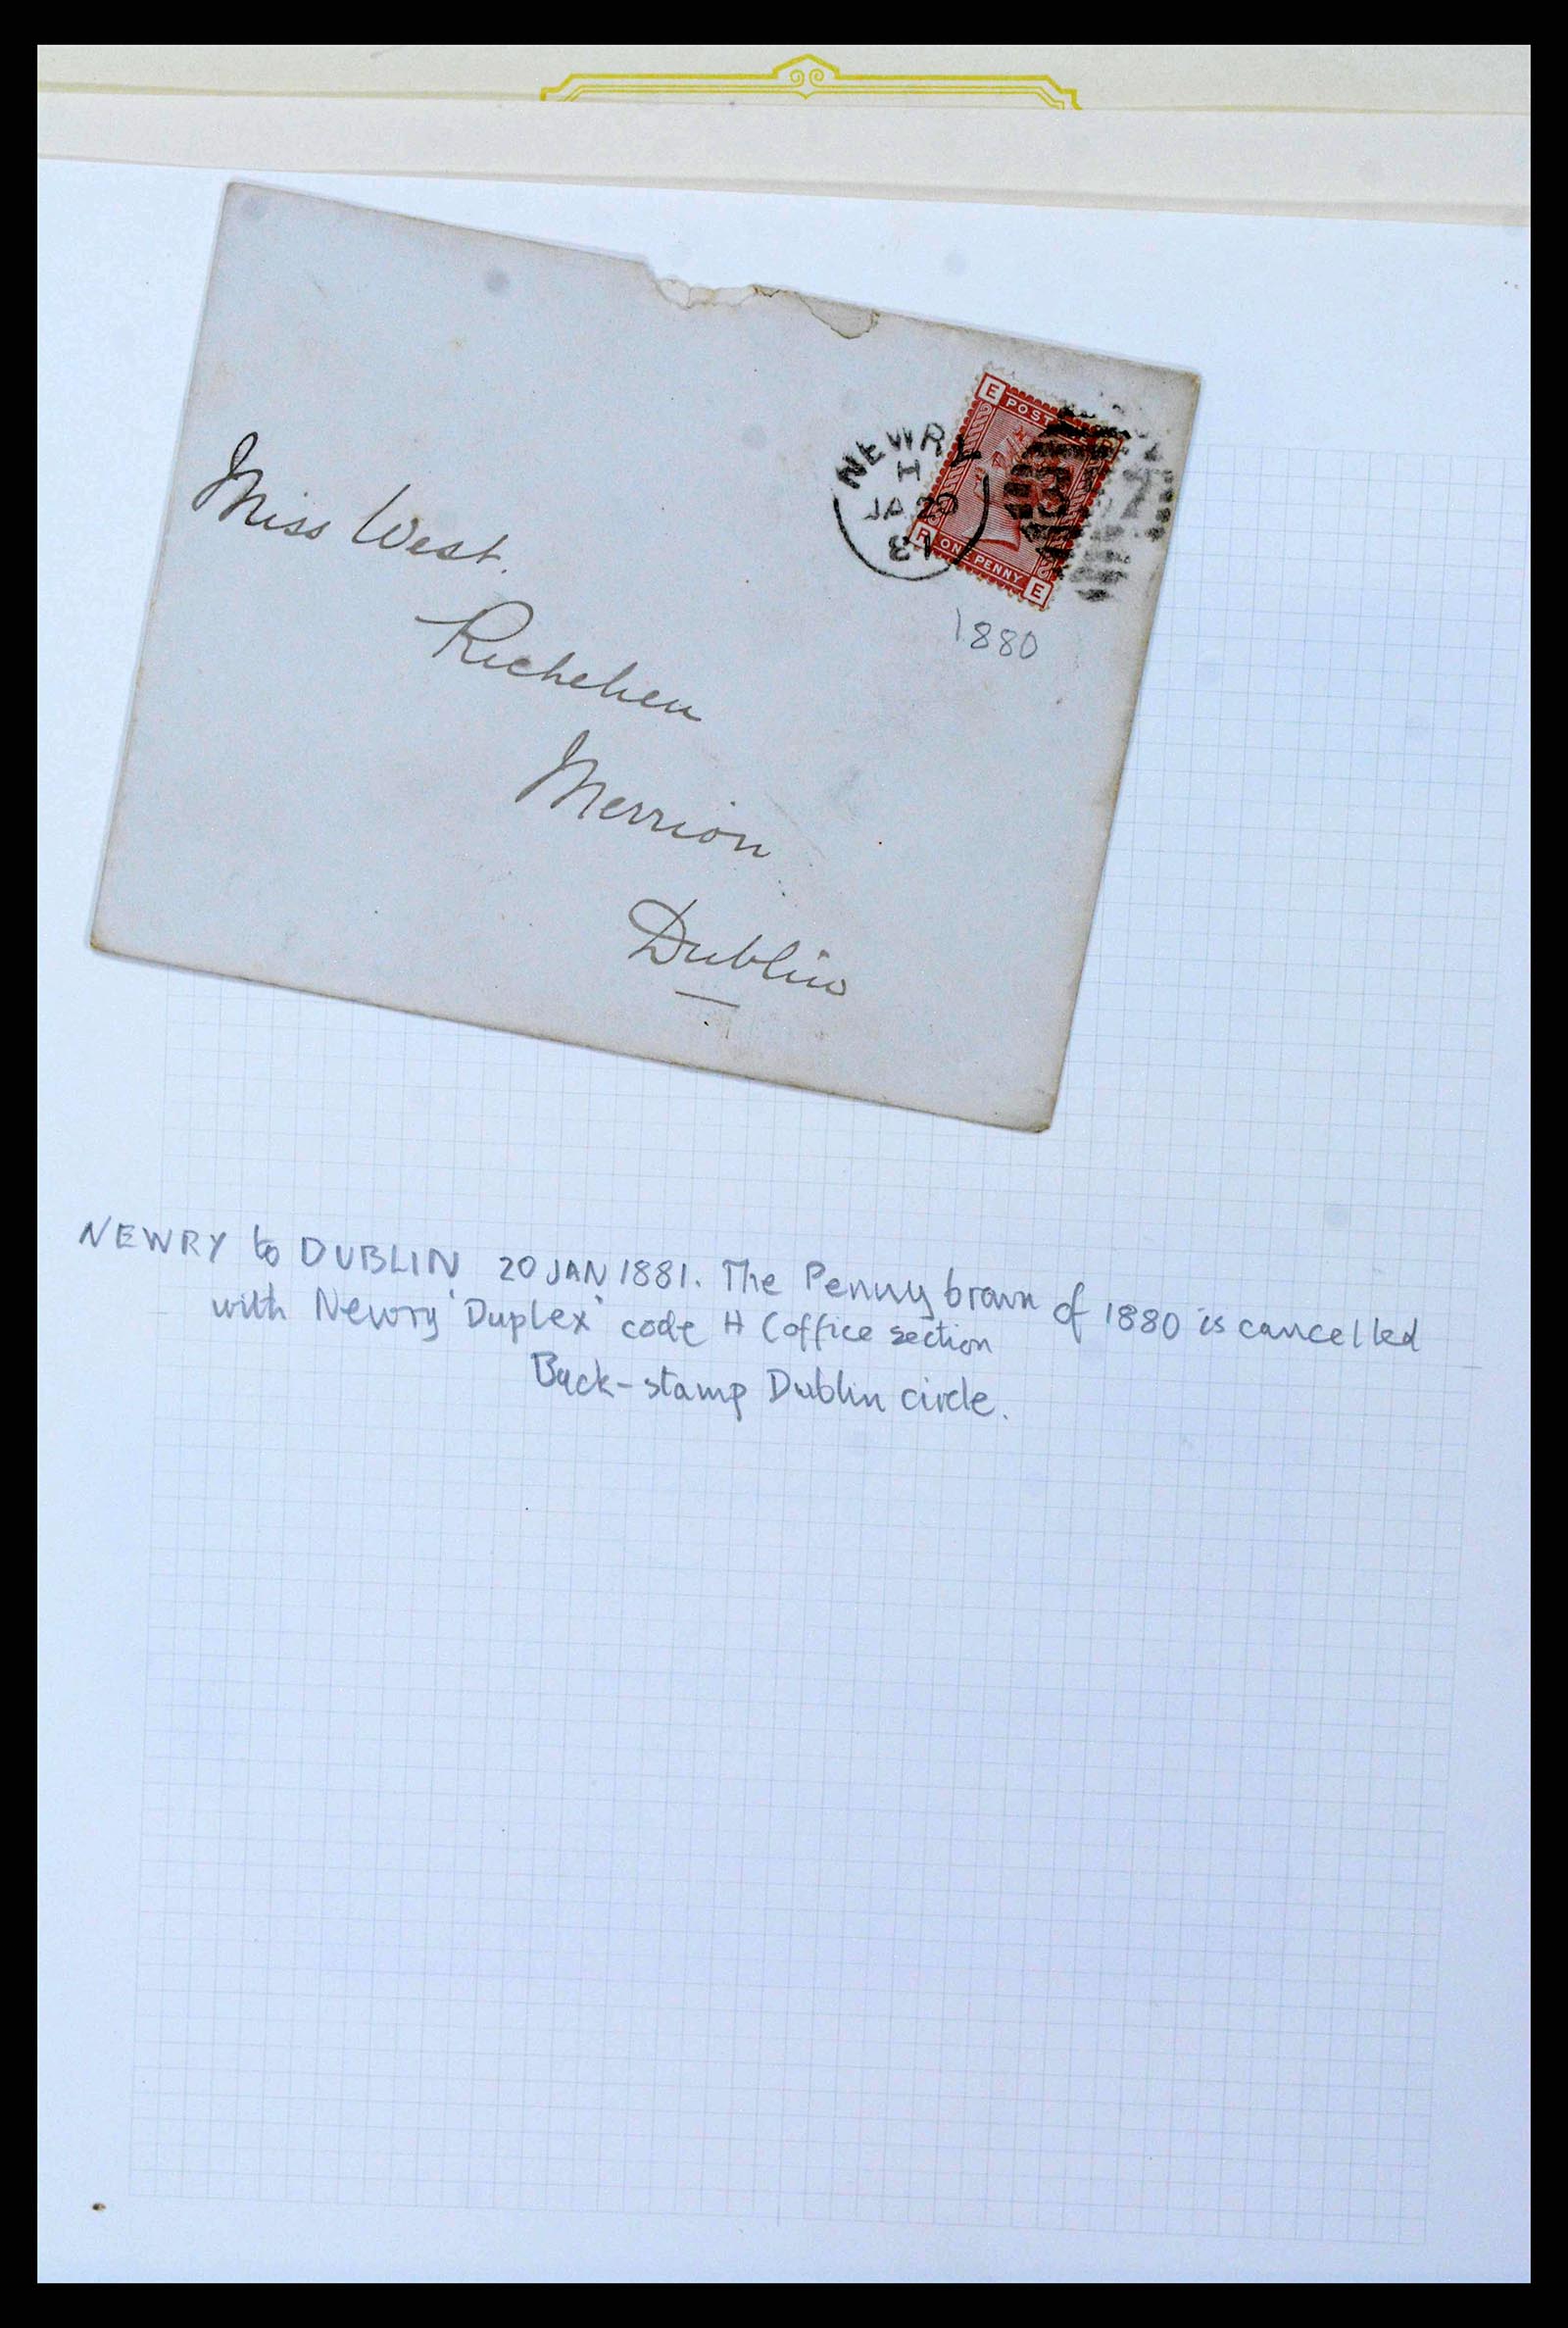 Miss West.
Richelieu
Merrion
Dublin
NEWRY
H
JA 20
81
E POST
ONE PENNY E
1880
NEWRY to DUBLIN 20 JAN 1881. The Penny brown of 1880 is cancelled
with Newry 'Duplex' code H (office section
Back-stamp Dublin circle.